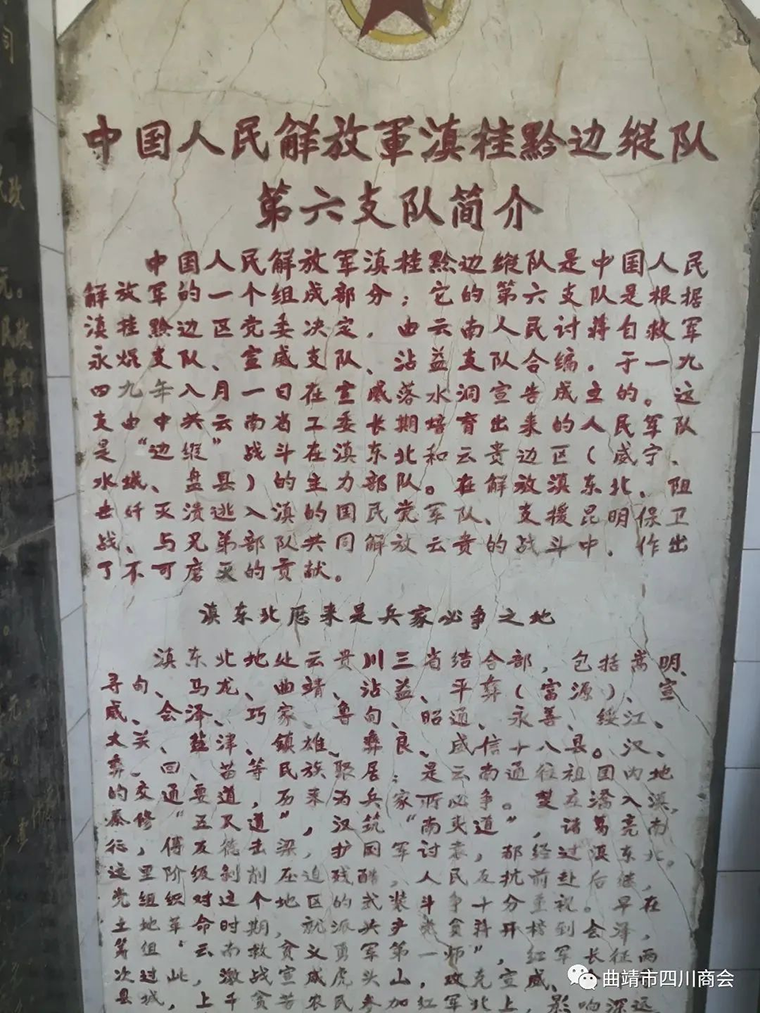 中国人民解放軍滇桂黔边纵队
第六支队简介
中国人民解放军滇桂黔边纵队是中国人民
解放军的一个组成部分；它的第六支队是根据
滇桂黔边区党委决定，由云南人民讨蒋自救军
永焜支队、宣威支队、沾益支队合编，于一九
四九年八月一日在宣威落水洞宣告成立的。这
支由中共云南省工委长期培育出来的人民军队
是“边纵”战斗在滇东北和云贵边区（威宁、
水城、盘县）的主力部队。在解放滇东北、阻
击歼灭溃逃入滇的国民党军队、支援昆明保卫
战、与兄弟部队共同解放云贵的战斗中，作出
了不可磨灭的贡献。
滇东北历来是兵家必争之地
滇东北地处云贵川三省结合部，包括嵩明、
寻甸、马龙、曲靖、沾益、平彝（富源）、宣
威、会泽、巧家、鲁甸、昭通、永善、绥江、
大关、盐津、镇雄、彝良、威信十八县。汉、
彝、回、苗等民族聚居；是云南通往祖国内地
的交通要道，历来为兵家所必争。楚庄蹻入滇，
秦修“五尺道”，汉筑“南夷道”，诸葛亮南
征，傅友德击梁，护国军讨袁，都经过滇东北。
这里阶级剥削压迫残酷，人民反抗前赴后继，
党组织对这个地区的武装斗争十分重视。早在
土地革命时期，就派共产党
筹组“云南救贫义勇军第一师”，红军长征两
次过此，激战宣威虎头山，攻克宣威、
县城，上千贫苦农民参加红军北上，影响深远
曲靖市四川商会